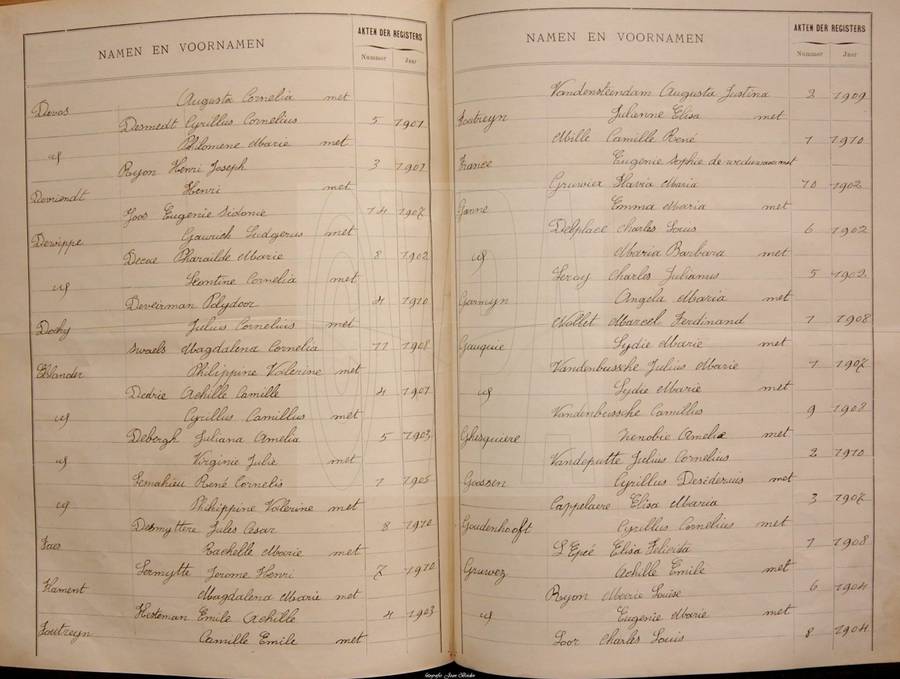 NAMEN EN VOORNAMEN
AKTEN DER REGISTERS
Nummer Jaar
Devos Augusta Cornelia met
Desmedt Cyrillus Cornelius 5 1901
id Philomene Marie met
Ryon Henri Joseph 3 1901
Devriendt Henri met
Joos Eugenie Sidonie 14 1907
Dewippe Gaurich Ludgerus met
Decae Pharaïlde Marie 8 1902
id Leontine Cornelia met
Deveirman Polydoor 4 1910
Dochy Julius Cornelius met
Swaels Magdalena Cornelia 11 1908
Eklander Philippine Valerine met
Dedrie Achille Camille 4 1901
id Cyrillus Camillus met
Debergh Juliana Amelia 5 1903
id Virginie Julie met
Lemahieu René Cornelis 1 1905
id Philippine Valerine met
Desmyttere Jules Cesar 8 1910
Faes Rachelle Marie met
Lermytte Jerome Henri 7 1910
Flament Magdalena Marie met
Hosteman Emile Achille 4 1903
Foutreyn Camille Emile met
NAMEN EN VOORNAMEN
AKTEN DER REGISTERS
Nummer Jaar
Vandensteendam Augusta Justina 2 1909
Foutreyn Julienne Elisa met
Mille Camille René 1 1910
France Eugenie Sophie de weduwe met
Gruwier Flavia Maria 10 1902
Ganne Emma Maria met
Delplace Charles Louis 6 1902
id Maria Barbara met
Leroy Charles Julianus 5 1902
Garmyn Angela Maria met
Wollet Marcel Ferdinand 1 1908
Gauquie Lydie Marie met
Vandenbussche Julius Marie 1 1907
id Lydie Marie met
Vandenbussche Camillus 9 1908
Ghesquiere Zenobie Amelie met
Vandeputte Julius Cornelius 2 1910
Goossen Cyrillus Desiderius met
Cappelaere Elisa Maria 3 1907
Goudenhooft Cyrillus Cornelius met
L'Epeé Elisa Felicita 1 1908
Gruwez Achille Emile met
Ryon Marie Louise 6 1904
id Eugenie Marie met
Loor Charles Louis 8 1904